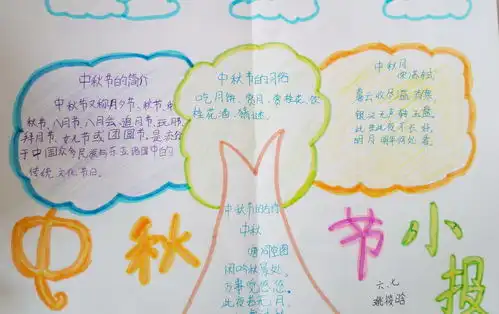 中秋节的简介
中秋节又称月夕节、秋节、中
秋节、八月节、八月会、追月节、玩月节、
拜月节、女儿节或团圆节,是流行
于中国众多民族与东亚诸国中的
传统文化节日。
中秋节的习俗
吃月饼、赏月、赏桂花、饮
桂花酒、猜谜。
中秋月
宋 苏轼
暮云收尽溢清寒,
银汉无声转玉盘。
此生此夜不长好,
明月明年何处看。
中秋节的古诗
中秋
唐 司空图
闲吟秋景外,
万事觉悠悠。
此夜若无月,
中秋节小报
六、七